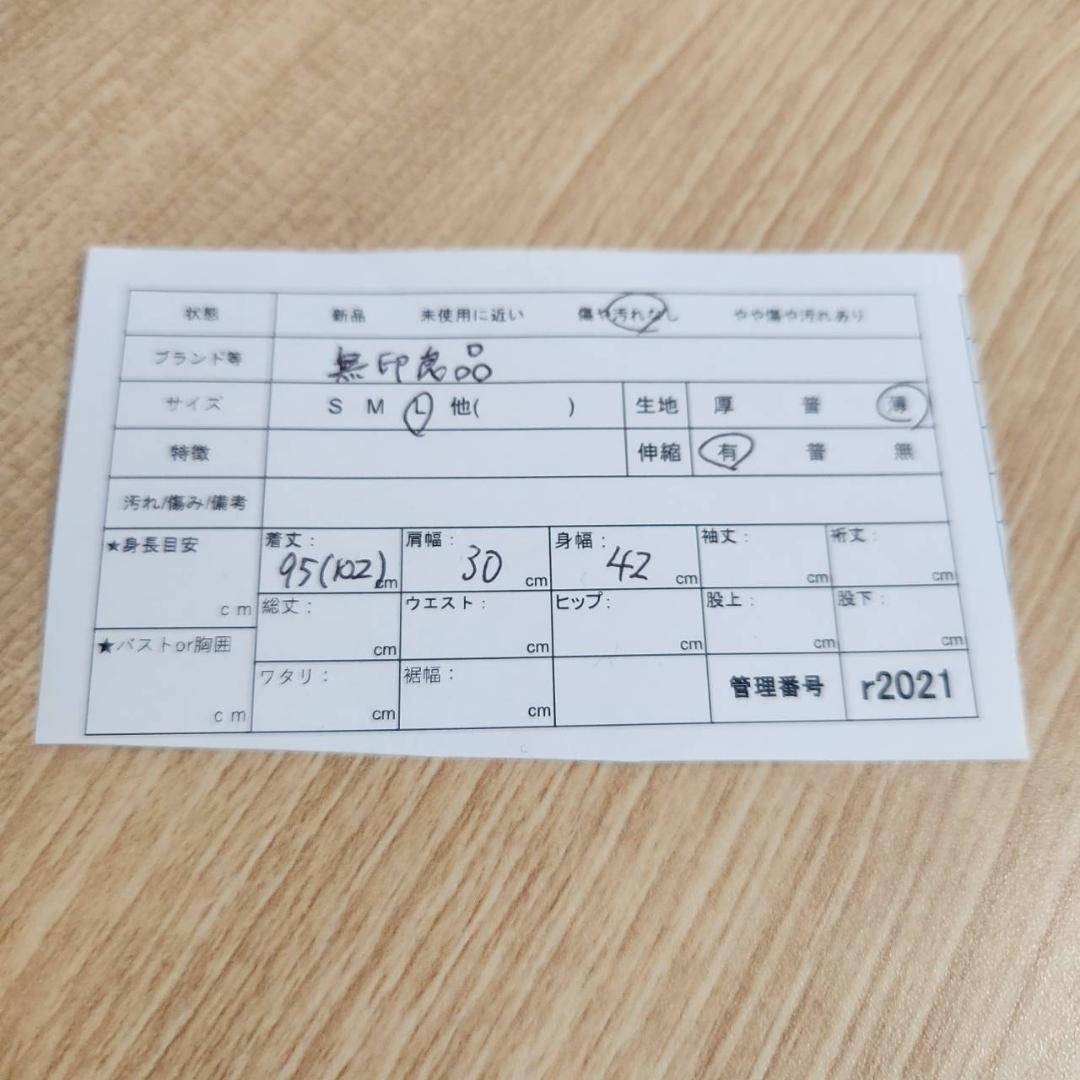 状態 新品 未使用に近い 傷や汚れなし やや傷や汚れあり
ブランド等 無印良品
サイズ S M L 他( ) 生地 厚 普 薄
特徴 伸縮 有 普 無
汚れ/傷み/備考
★身長目安 cm
着丈: 95(102)cm 肩幅: 30 cm 身幅: 42 cm 袖丈: cm 裄丈: cm
総丈: cm ウエスト: cm ヒップ: cm 股上: cm 股下: cm
★バストor胸囲 cm
ワタリ: cm 裾幅: cm 管理番号 r2021